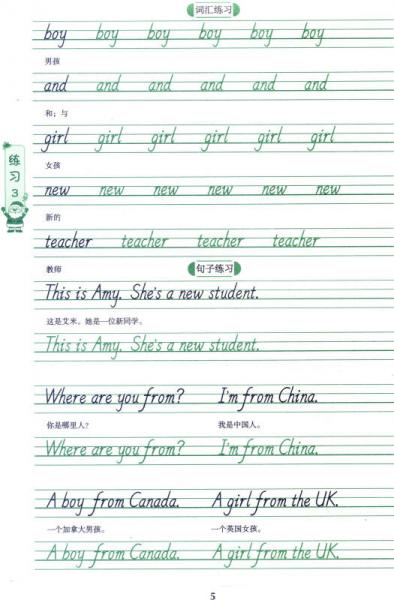 词汇练习
boy boy boy boy boy boy
男孩
and and and and and and
和；与
girl girl girl girl girl girl
女孩
练习3
new new new new new new
新的
teacher teacher teacher teacher
教师
句子练习
This is Amy. She's a new student.
这是艾米。她是一位新同学。
This is Amy. She's a new student.
Where are you from? I'm from China.
你是哪里人？ 我是中国人。
Where are you from? I'm from China.
A boy from Canada. A girl from the UK.
一个加拿大男孩。 一个英国女孩。
A boy from Canada. A girl from the UK.
5